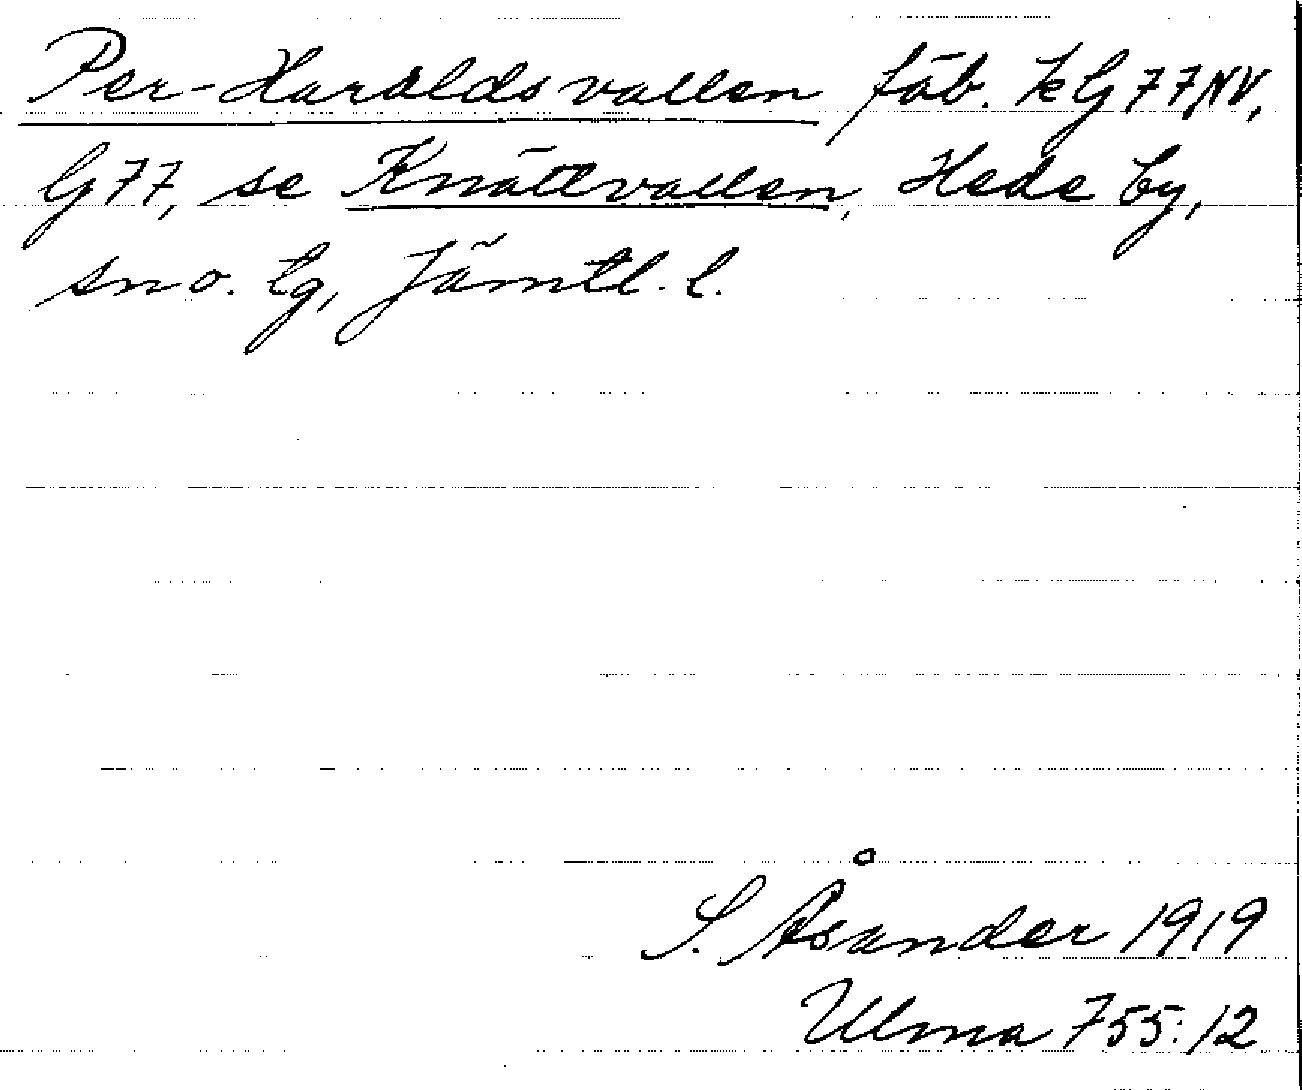 Per-Haraldsvallen fäb. kG77NV,
G77, se Knättvallen, Hede by,
sn o. tg, Jämtl. l.
S. Åsander 1919
Ulma 755:12